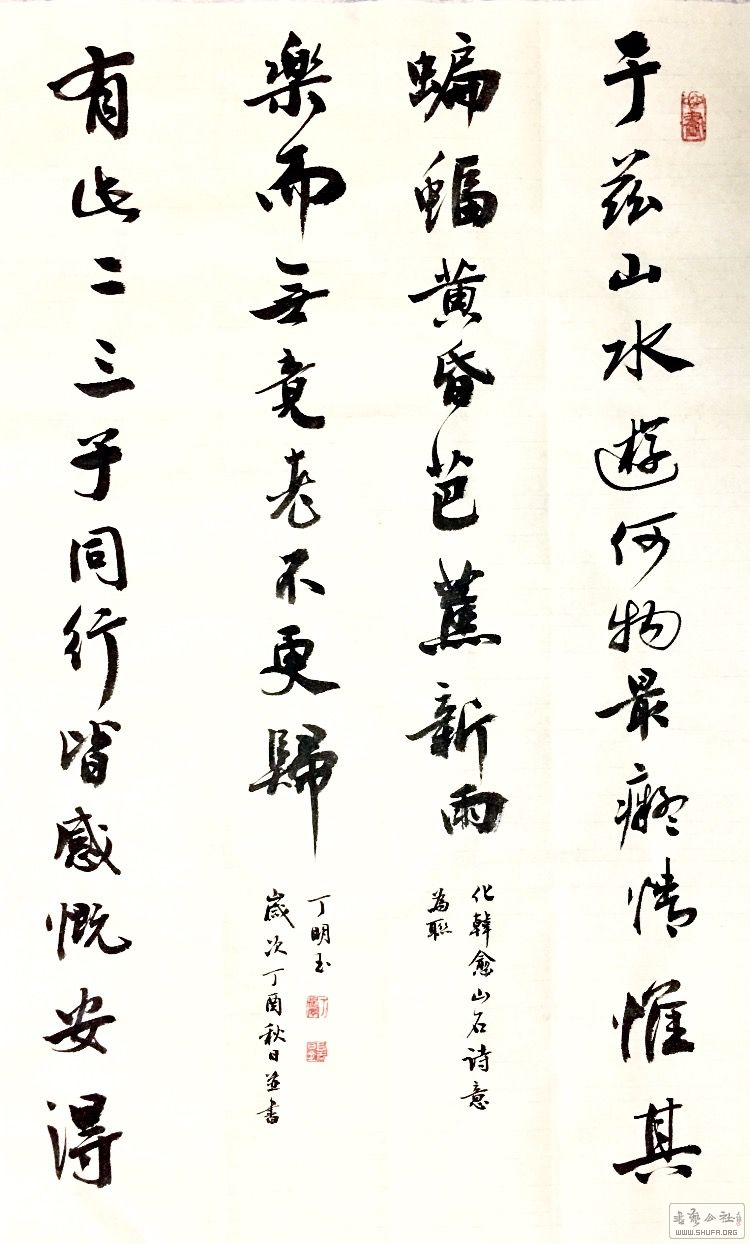 于兹山水遊何物最癡情惟其
蝙蝠黄昏芭蕉新雨
化韓愈山石诗意
為聯
有此二三子同行皆感慨安得
樂而無竟老不更歸
歲次丁酉秋日並書
丁明玉
书艺公社
WWW.SHUFA.ORG